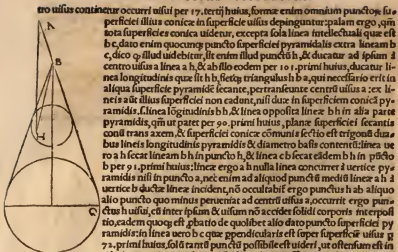 tro uisus continetur occurri uisui per 17, tertij huius, formæ enim omnium punctorum su-
perficiei illius conicæ in superficie uisus depinguntur: palam ergo, qm̃
tota superficies conica uidetur, excepta sola linea intellectuali quæ est
b c, dato enim quocunqꝫ puncto superficiei pyramidalis extra lineam b
c, dico ꝙ illud uidebitur, sit enim illud punctũ h, & ducatur ad ipsum à
centro uisus a linea a h, & ab illo eodem per 101. primi huius, ducatur li-
nea longitudinis quæ sit h b, fietqꝫ triangulus h b a, qui necessario erit in
aliqua superficie pyramidẽ secante, pertranseunte centrũ uisus a: ex li-
neis aũt illius superficiei non cadunt, nisi duæ in superficiem conicã py-
ramidis, s. linea lõgitudinis b h, & linea opposita lineæ b h in alia parte
pyramidis, qm̃ ut patet per 90. primi huius, planæ superficiei secantis
conũ trans axem, & superficiei conicæ cõmunis sectio est trigonũ dua-
bus lineis longitudinis pyramidis & diametro basis contentũ: linea ue
ro a h secat lineam b h in puncto h, & linea c b secat eãdem b h in pũcto
b per 91. primi huius: linea ergo a h nulla linea concurret à uertice py-
ramidis nisi in puncto a, nec enim ad aliquod punctũ mediũ lineæ a h à
uertice b ductæ lineæ incident, nõ occultabit ergo punctus h ab aliquo
alio puncto quo minus perueniat ad centrũ uisus a, occurrit ergo pun-
ctus h uisui, cũ inter ipsum & uisum nõ accidet solidi corporis interposi
tio, eadem quoqꝫ est ꝓbatio de quolibet alio dato puncto superficiei py
ramidis: in linea uero b c quæ ꝑpendicularis est super superficiẽ uisus ꝑ
72. primi huius, solũ tantũ punctũ possibile est uideri, ut ostensum est in